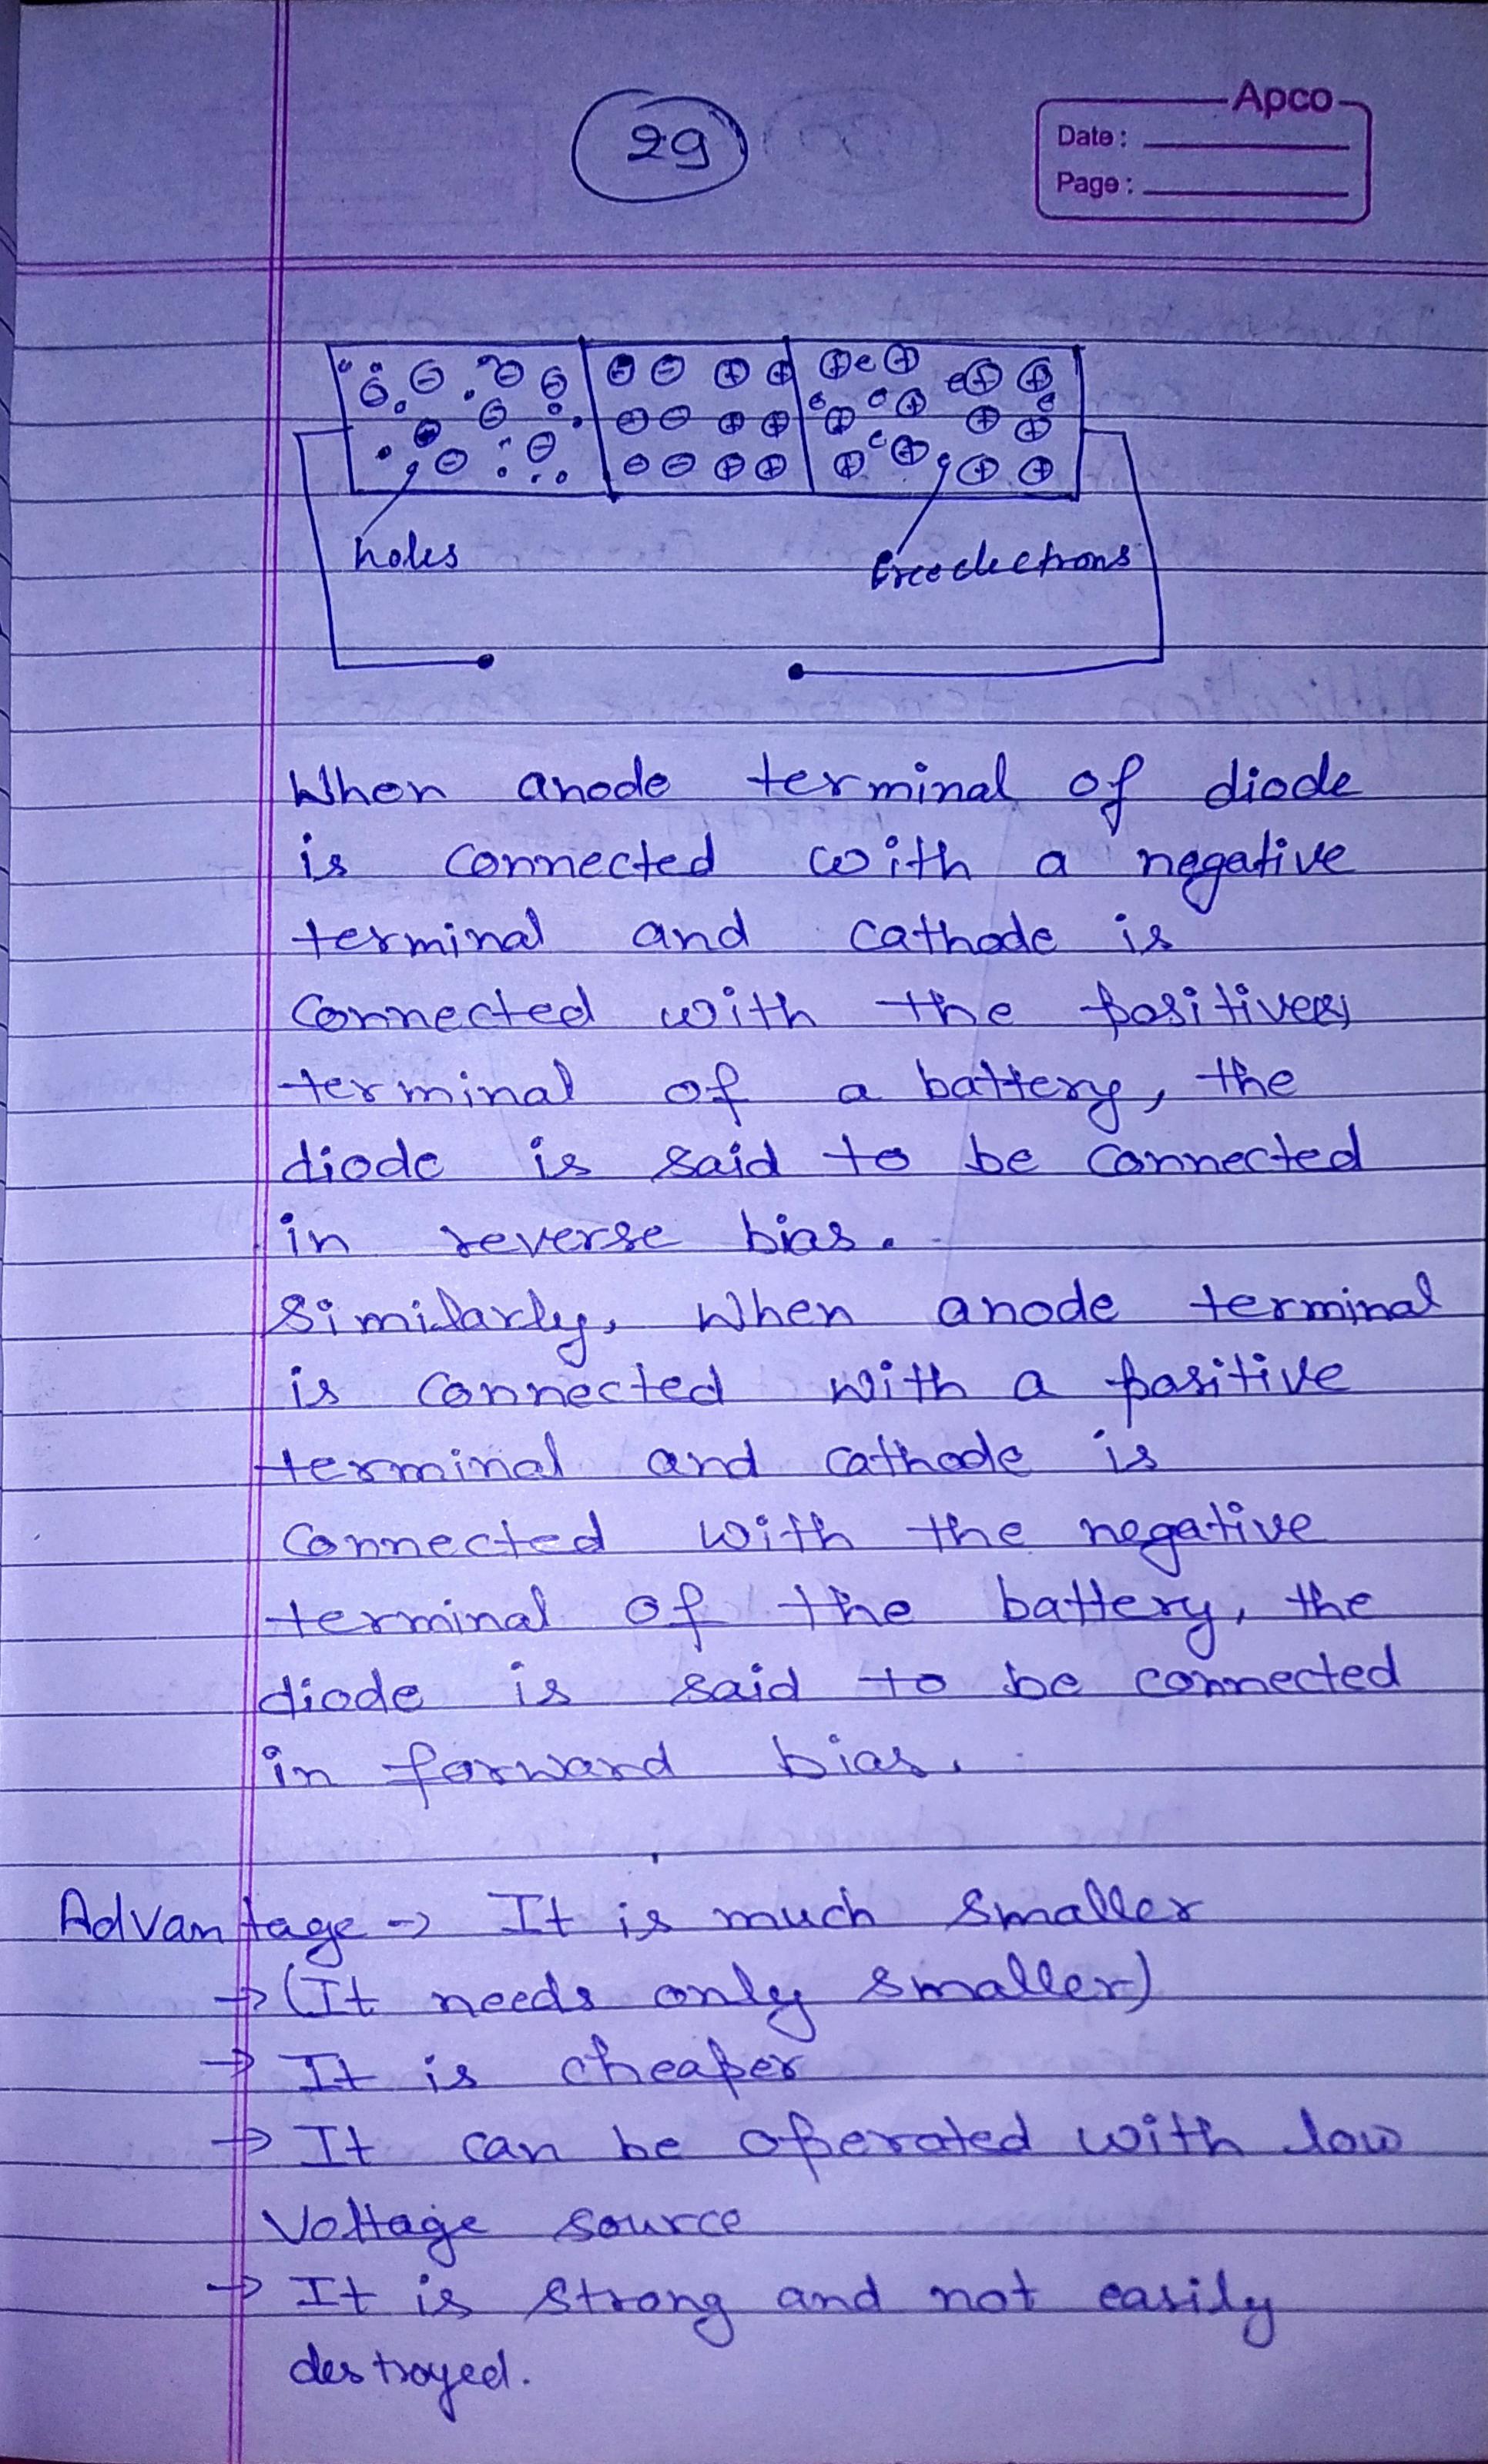 29
Apco
Date :
Page :
holes
free electrons
When anode terminal of diode
is connected with a negative
terminal and cathode is
connected with the positive
terminal of a battery, the
diode is said to be connected
in reverse bias.
Similarly, when anode terminal
is connected with a positive
terminal and cathode is
connected with the negative
terminal of the battery, the
diode is said to be connected
in forward bias.
Advantage → It is much smaller
→ (It needs only smaller)
→ It is cheaper
→ It can be operated with low
voltage source
→ It is strong and not easily
destroyed.